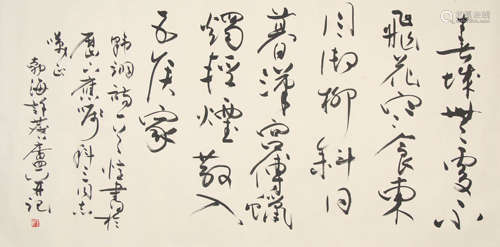 春城無處不
飛花寒食東
風御柳斜日
暮漢宮傳蠟
燭輕煙散入
五侯家
韓翃詩一首 書於
應囑 科三同志
嘆正
勃海 并記